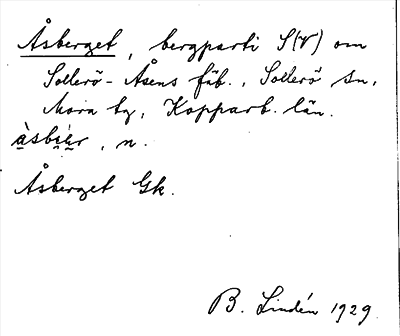 Åsberget, bergparti S(V) om
Sollerö-Åsens fäb., Sollerö sn,
Mora tg, Kopparb. län.
àsbı̨̀ä̀r, n.
Åsberget Gk.
B. Lindén 1929.